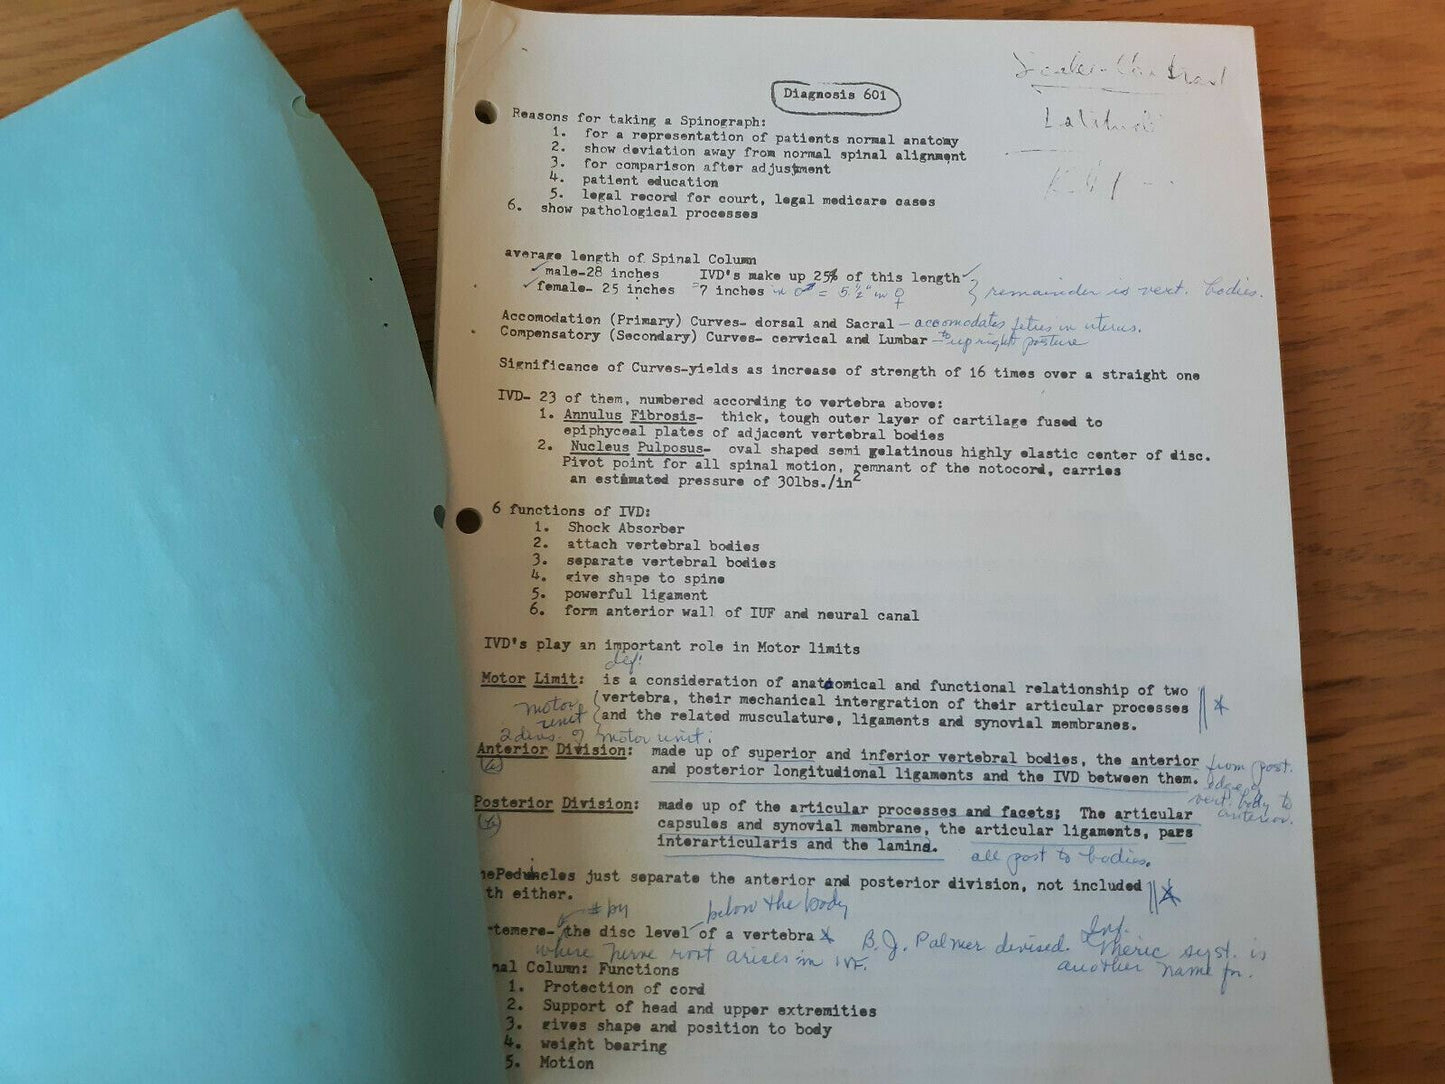 Diagnosis 601
Latitude
Reasons for taking a Spinograph:
1. for a representation of patients normal anatomy
2. show deviation away from normal spinal alignment
3. for comparison after adjustment
4. patient education
5. legal record for court, legal medicare cases
6. show pathological processes
average length of Spinal Column
male-28 inches IVD's make up 25% of this length
female- 25 inches =7 inches in ♂ = 5 1/2" in ♀ } remainder is vert. bodies.
Accomodation (Primary) Curves- dorsal and Sacral - accomodates fetus in uterus.
Compensatory (Secondary) Curves- cervical and Lumbar - to upright posture
Significance of Curves-yields as increase of strength of 16 times over a straight one
IVD- 23 of them, numbered according to vertebra above:
1. Annulus Fibrosis- thick, tough outer layer of cartilage fused to
epiphyceal plates of adjacent vertebral bodies
2. Nucleus Pulposus- oval shaped semi gelatinous highly elastic center of disc.
Pivot point for all spinal motion, remnant of the notocord, carries
an estimated pressure of 30lbs./in2
6 functions of IVD:
1. Shock Absorber
2. attach vertebral bodies
3. separate vertebral bodies
4. give shape to spine
5. powerful ligament
6. form anterior wall of IUF and neural canal
IVD's play an important role in Motor limits
def:
Motor Limit: is a consideration of anatomical and functional relationship of two
vertebra, their mechanical intergration of their articular processes
and the related musculature, ligaments and synovial membranes.
motor
unit
2 divs. of motor unit:
Anterior Division: made up of superior and inferior vertebral bodies, the anterior
and posterior longitudional ligaments and the IVD between them.
from post.
edge of
vert. body to
anterior.
Posterior Division: made up of the articular processes and facets; The articular
capsules and synovial membrane, the articular ligaments, pars
interarticularis and the lamina.
all post to bodies.
hePeduncles just separate the anterior and posterior division, not included
th either.
# by below the body
temere- the disc level of a vertebra * B.J. Palmer devised. Inf.
where nerve root arises in IVF. Meric syst. is
another name for.
nal Column: Functions
1. Protection of cord
2. Support of head and upper extremities
3. gives shape and position to body
4. weight bearing
5. Motion